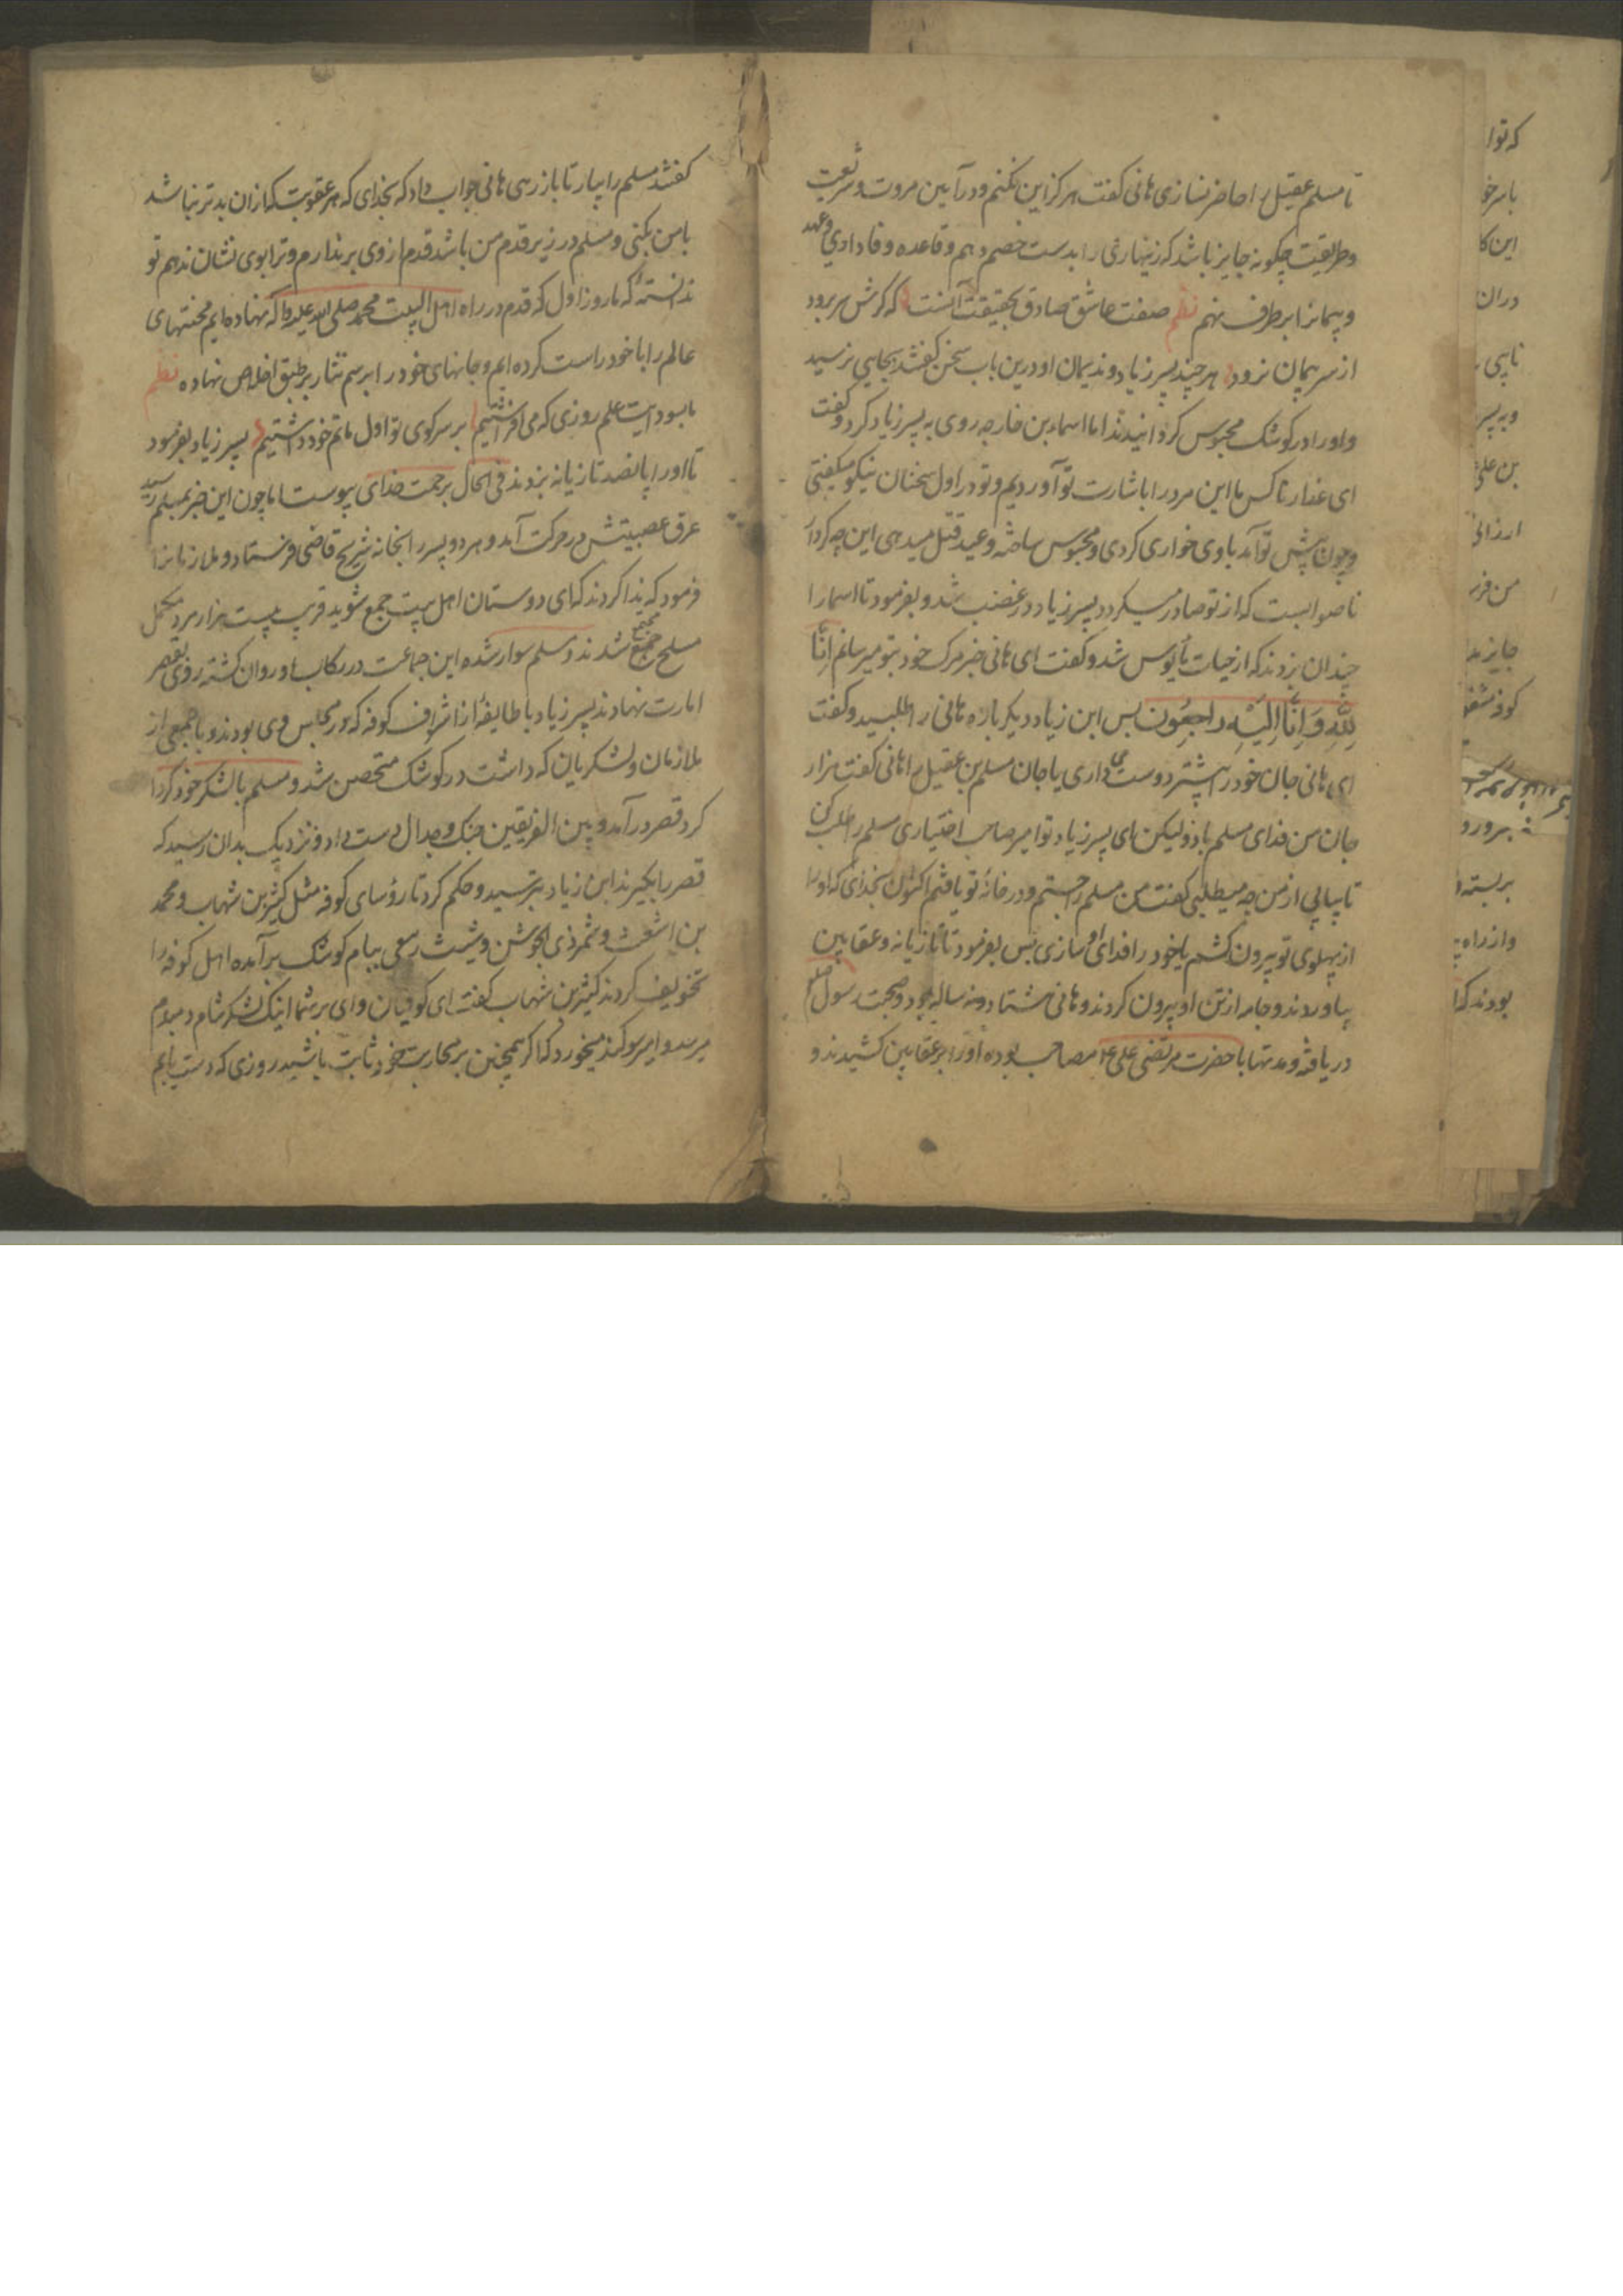 تا مسلم عقیل را حاضر نسازی هانی گفت هرگز این نکنم و در آیین مروت و شریعت
و طریقت چگونه جایز باشد که زینهاری را بدست خصم دهم و قاعده وفاداری و عهد
و پیمانرا بر طرف نهم نظم صفت عاشق صادق بحقیقت آنست که گرش سر برود
از سر پیمان نرود هر چند پسر زیاد و ندیمان او درین باب سخن گفتند بجایی نرسید
و او را در کوشک محبوس گردانیدند اما اسما بن خارجه روی به پسر زیاد کرد و گفت
ای غدار ناکس ما این مرد را باشارت تو آوردیم و تو در اول سخنان نیکو میگفتی
و چون پیش تو آمد با وی خواری کردی و محبوس ساخته وعید قتل میدهی این چه کردار
ناصوابست که از تو صادر میگردد پسر زیاد در غضب شد و بفرمود تا اسما را
چندان بزدند که از حیات مأیوس شد و گفت ای هانی خبر مرک خود بتو میرسانم انا
لله وانا الیه راجعون پس ابن زیاد دیگر باره هانی را طلبید و گفت
ای هانی جان خود را بیشتر دوست می داری یا جان مسلم بن عقیل را هانی گفت هزار
جان من فدای مسلم باد ولیکن ای پسر زیاد تو امیر صاحب اختیاری مسلم را طلب کن
تا بیابی از من چه میطلبی گفت من مسلم را جستم و در خانه تو یافتم اکنون بخدای که او را
از پهلوی تو بیرون کشم یا خود را فدای او سازی پس بفرمود تا تازیانه و عقابین
بیاوردند و جامه از تن او بیرون کردند و هانی هشتاد و نه ساله بود و صحبت رسول صلعم
دریافته و مدتها با حضرت مرتضی علی ع مصاحب بوده او را بر عقابین کشیدند و
گفتند مسلم را بیار تا باز رهی هانی جواب داد که بخدای که هر عقوبت که ازان بدتر نباشد
با من بکنی و مسلم در زیر قدم من باشد قدم از وی برندارم و ترا بوی نشان ندهم تو
ندانستۀ که ما روز اول که قدم در راه اهل البیت محمد صلی الله علیه نهاده ایم محنتهای
عالم را با خود راست کرده ایم و جانهای خود را برسم نثار بر طبق اخلاص نهاده نظم
علم روزی که می افراشتیم بر سر کوی تو اول ماتم خود داشتیم پسر زیاد بفرمود
تا او را پانصد تازیانه بزدند فی الحال برحمت خدای پیوست اما چون این خبر بمسلم رسید
عرق عصبیتش در حرکت آمد و هر دو پسر را بخانه شریح قاضی فرستاد و ملازمانرا
فرمود که ندا کردند که ای دوستان اهل بیت جمع شوید قریب بیست هزار مرد مکمل
مسلح جمع شدند و مسلم سوار شده این جماعت در رکاب او روان گشته روی بقصر
امارت نهادند پسر زیاد با طایفۀ از اشراف کوفه که در مجلس وی بودند و با جمعی از
ملازمان و لشکریان که داشت در کوشک متحصن شد و مسلم با لشکر خود گردا
گرد قصر درآمد و بین الفریقین جنک و جدال دست داد و نزدیک بدان رسید که
قصر را بگیرند ابن زیاد بترسید و حکم کرد تا رؤسای کوفه مثل کثیر بن شهاب و محمد
بن اشعث و شمر ذی الجوشن و شیث ربعی ببام کوشک برآمده اهل کوفه را
تخویف کردند کثیر بن شهاب گفت ای کوفیان وای بر شما اینک لشکر شام دمبدم
میرسد و امیر سوگند میخورد که اگر همچنین بر محاربت خود ثابت باشید روزی که دست یابم
که توا
این کا
دران
من فرز
بربسته
وازراه
بودند که